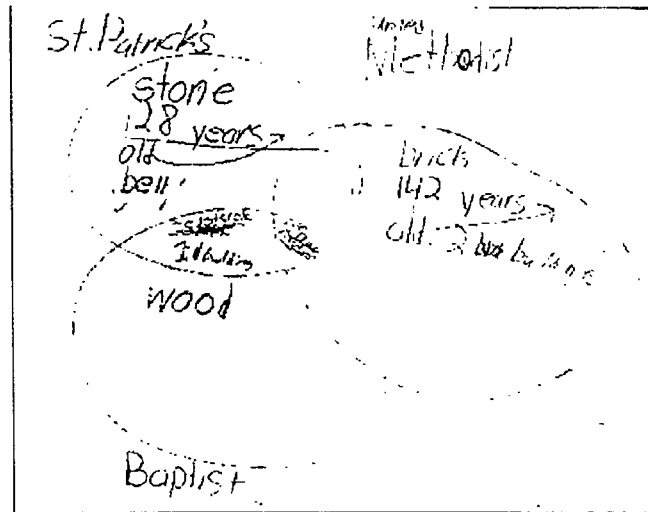 St. Patrick's
United
Methodist
stone
128 years
old
bell
brick
142 years
old. 2 buildings
1 building
wood
Baptist